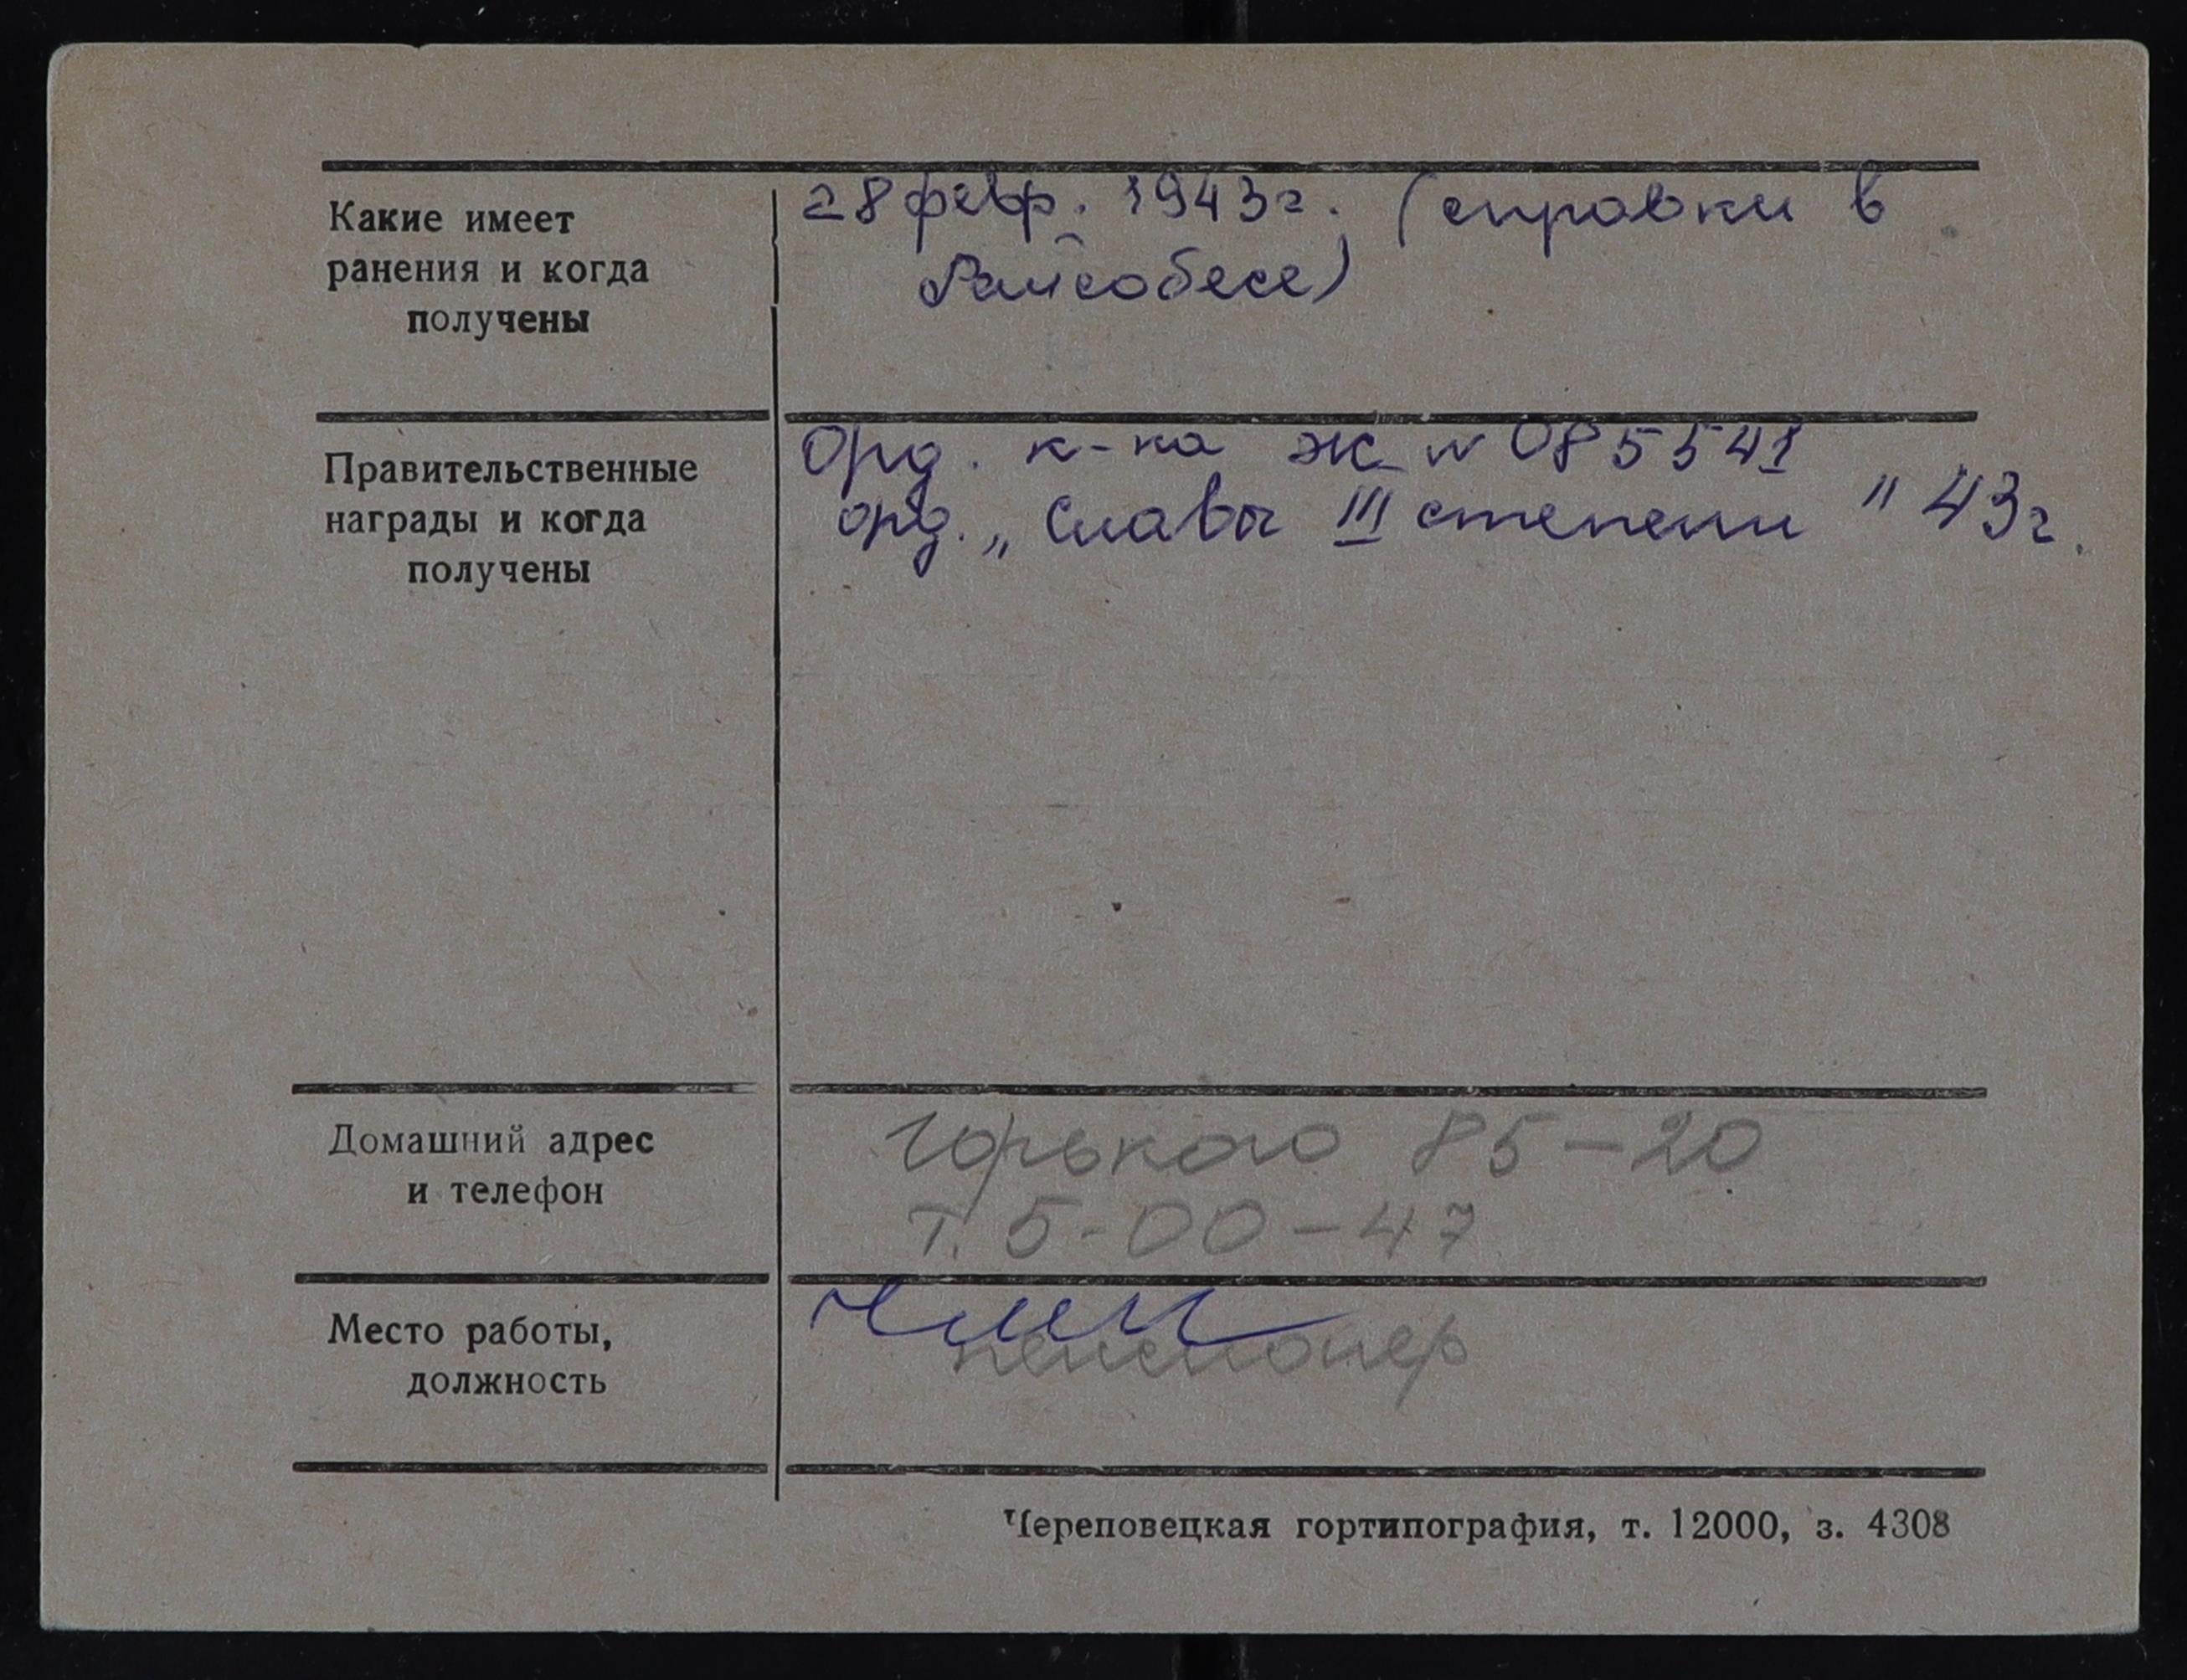 Какие имеет
ранения и когда
получены
28 февр. 1943г. (справки в
Райсобесе)
Правительственные
награды и когда
получены
Орд. к-ка Ж N 085541
орд. „Славы III степени" 43г.
Домашний адрес
и телефон
Горького 85-20
т. 5-00-47
Место работы,
должность
пенсионер
Череповецкая гортипография, т. 12000, з. 4308